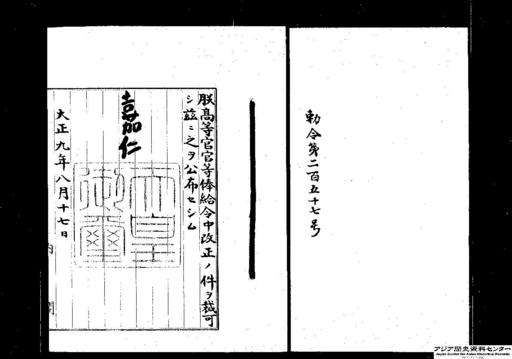 勅令第二百五十七号
朕高等官官等俸給令中改正ノ件ヲ裁可
シ茲ニ之ヲ公布セシム
嘉仁
天皇御璽
大正九年八月十七日
内閣
アジア歴史資料センター
Japan Center for Asian Historical Records